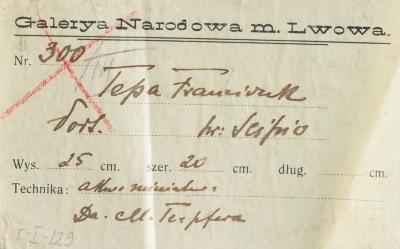 Galerya Narodowa m. Lwowa.
Nr. 300
Tepa Franciszek
Port. hr. Scipio
Wys. 25 cm. szer. 20 cm. dług. cm.
Technika: akw. miniatur.
Da. M. Terpfera
Γ-I-129